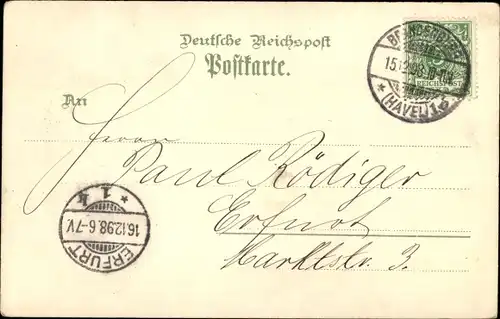 Deutsche Reichspost
Postkarte.
BRANDENBURG
15.12.98
* (HAVEL) 1.
REICHSPOST
An
Herrn
Paul Rödiger
Erfurt
Marktstr. 3.
* 1 k
16.12.98. 6-7V.
ERFURT